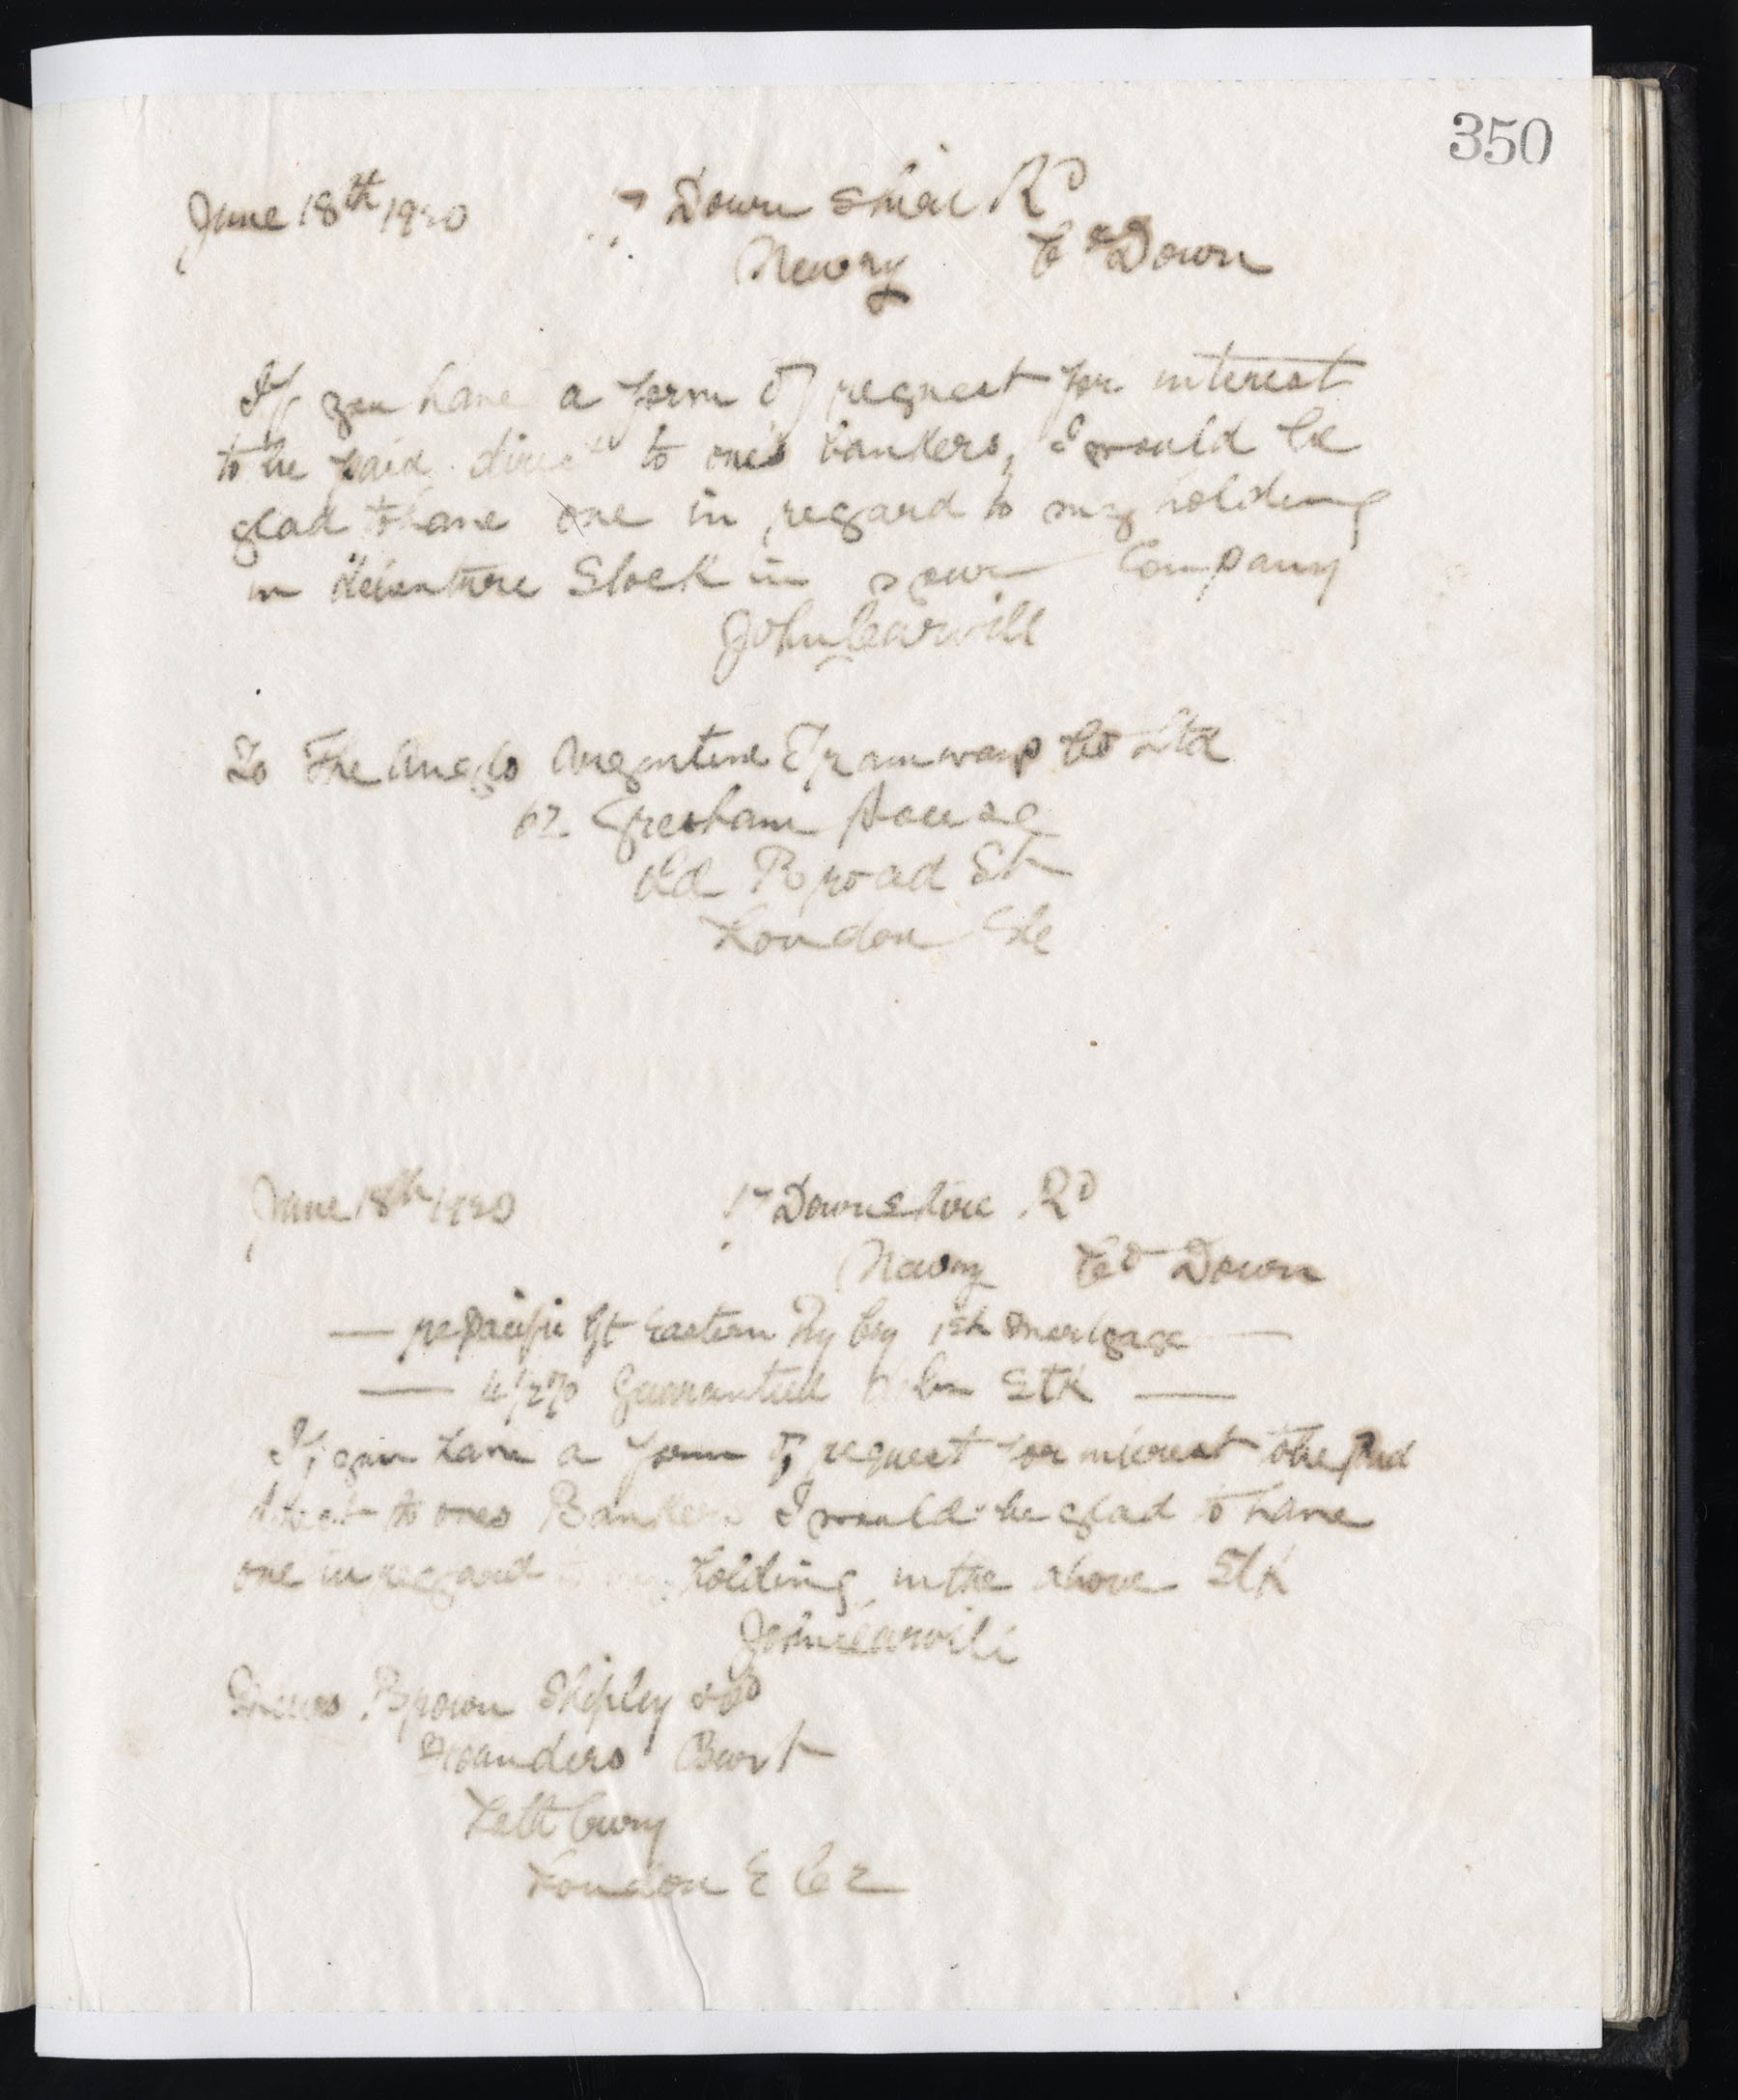 350
June 18th 1920 17 Downshire Rd
Newry Co Down
If you have a form of request for interest
to be paid direct to one's bankers, I would be
glad to have one in regard to my holding
in debenture Stock in your Company
John Carvill
To The Anglo Argentine Tramways Co Ltd
62 Gresham House
Old Broad St
London EC
June 18th 1920 17 Downshire Rd
Newry Co Down
— re Pacific Gt Eastern Ry Coy 1st Mortgage —
— 4 1/2 % Guaranteed Deben Stk —
If you have a form of request for interest to be paid
direct to ones Bankers I would be glad to have
one in regard to my holding in the above Stk
John Carvill
Messrs Brown Shipley & Co
Founders Court
Lothbury
London E C 2